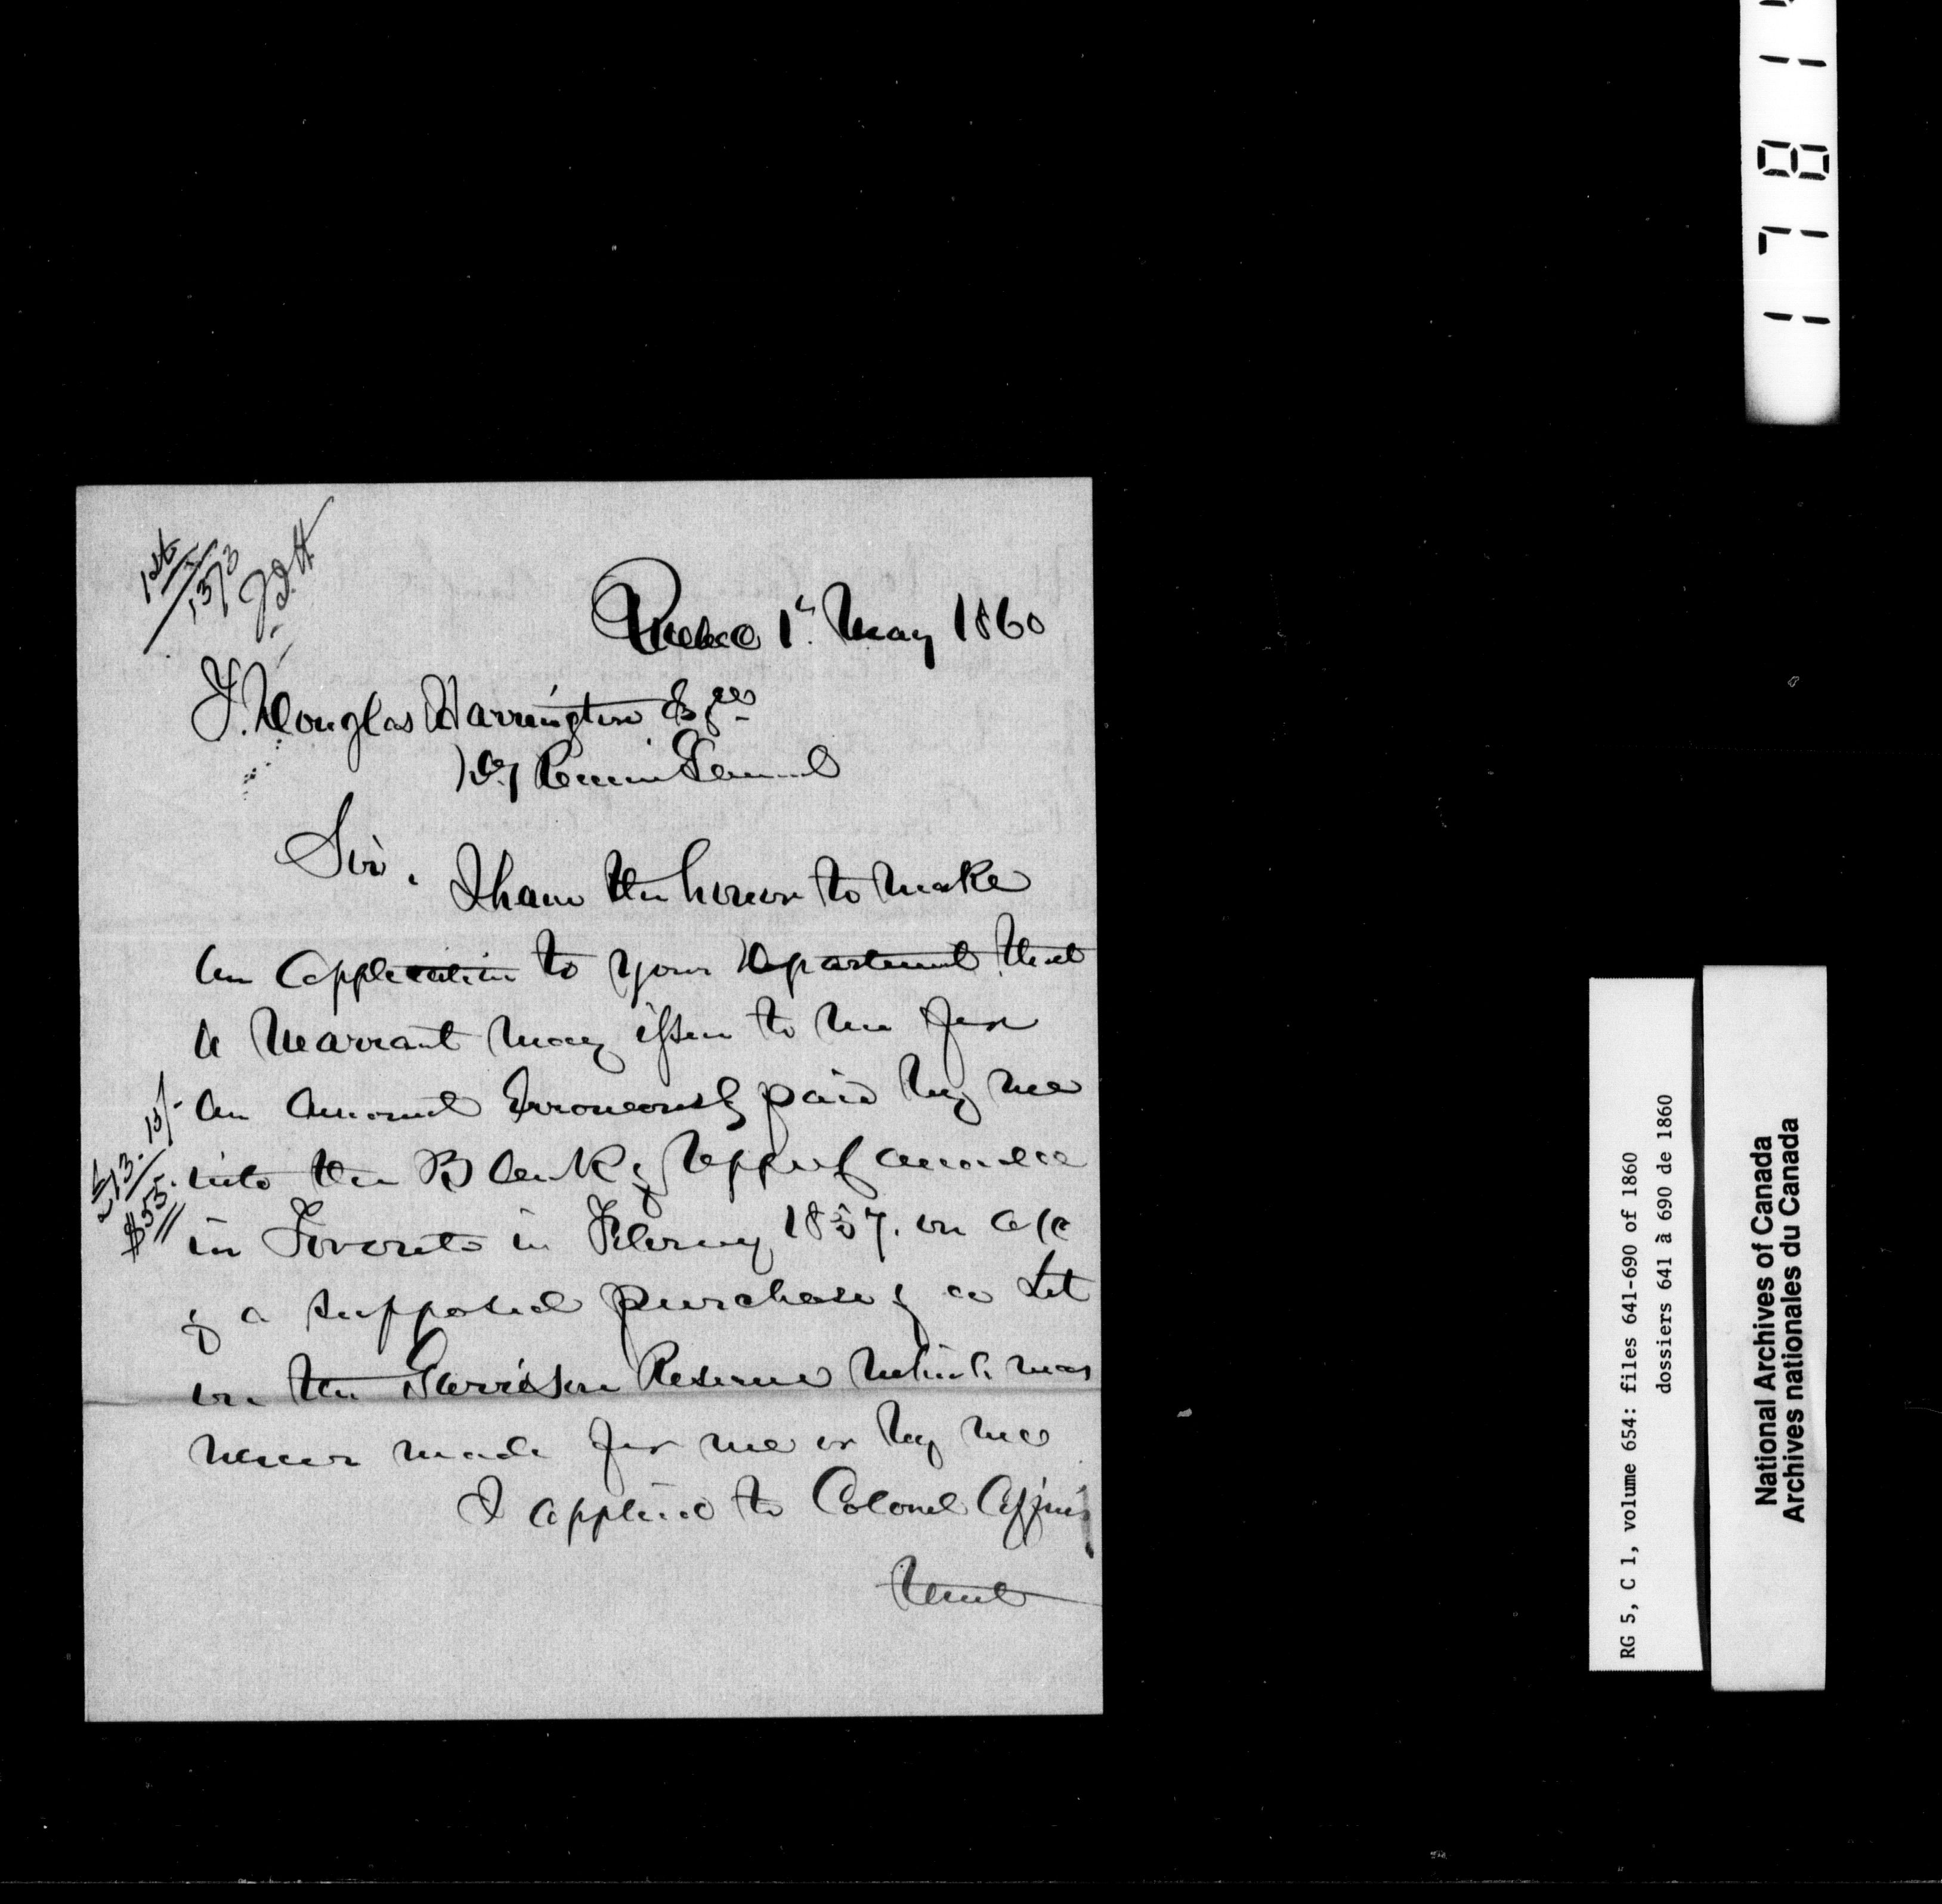 Quebec 1st May 1860
T. Douglas Harrington Esqre
Dy Receiver General
Sir,
I have the honor to make
an application to your Department that
a Warrant may issue to me for
an amount Erroneously paid by me
into the Bank of Upper Canada
in Toronto in February 1857. on a/c
of a supposed purchase of a Lot
on the Garrison Reserve which was
never made for me or by me
I applied to Colonel
£13.15/-
$55.
T.D.H.
1781
RG 5, C 1, volume 654: files 641-690 of 1860
dossiers 641 à 690 de 1860
National Archives of Canada
Archives nationales du Canada